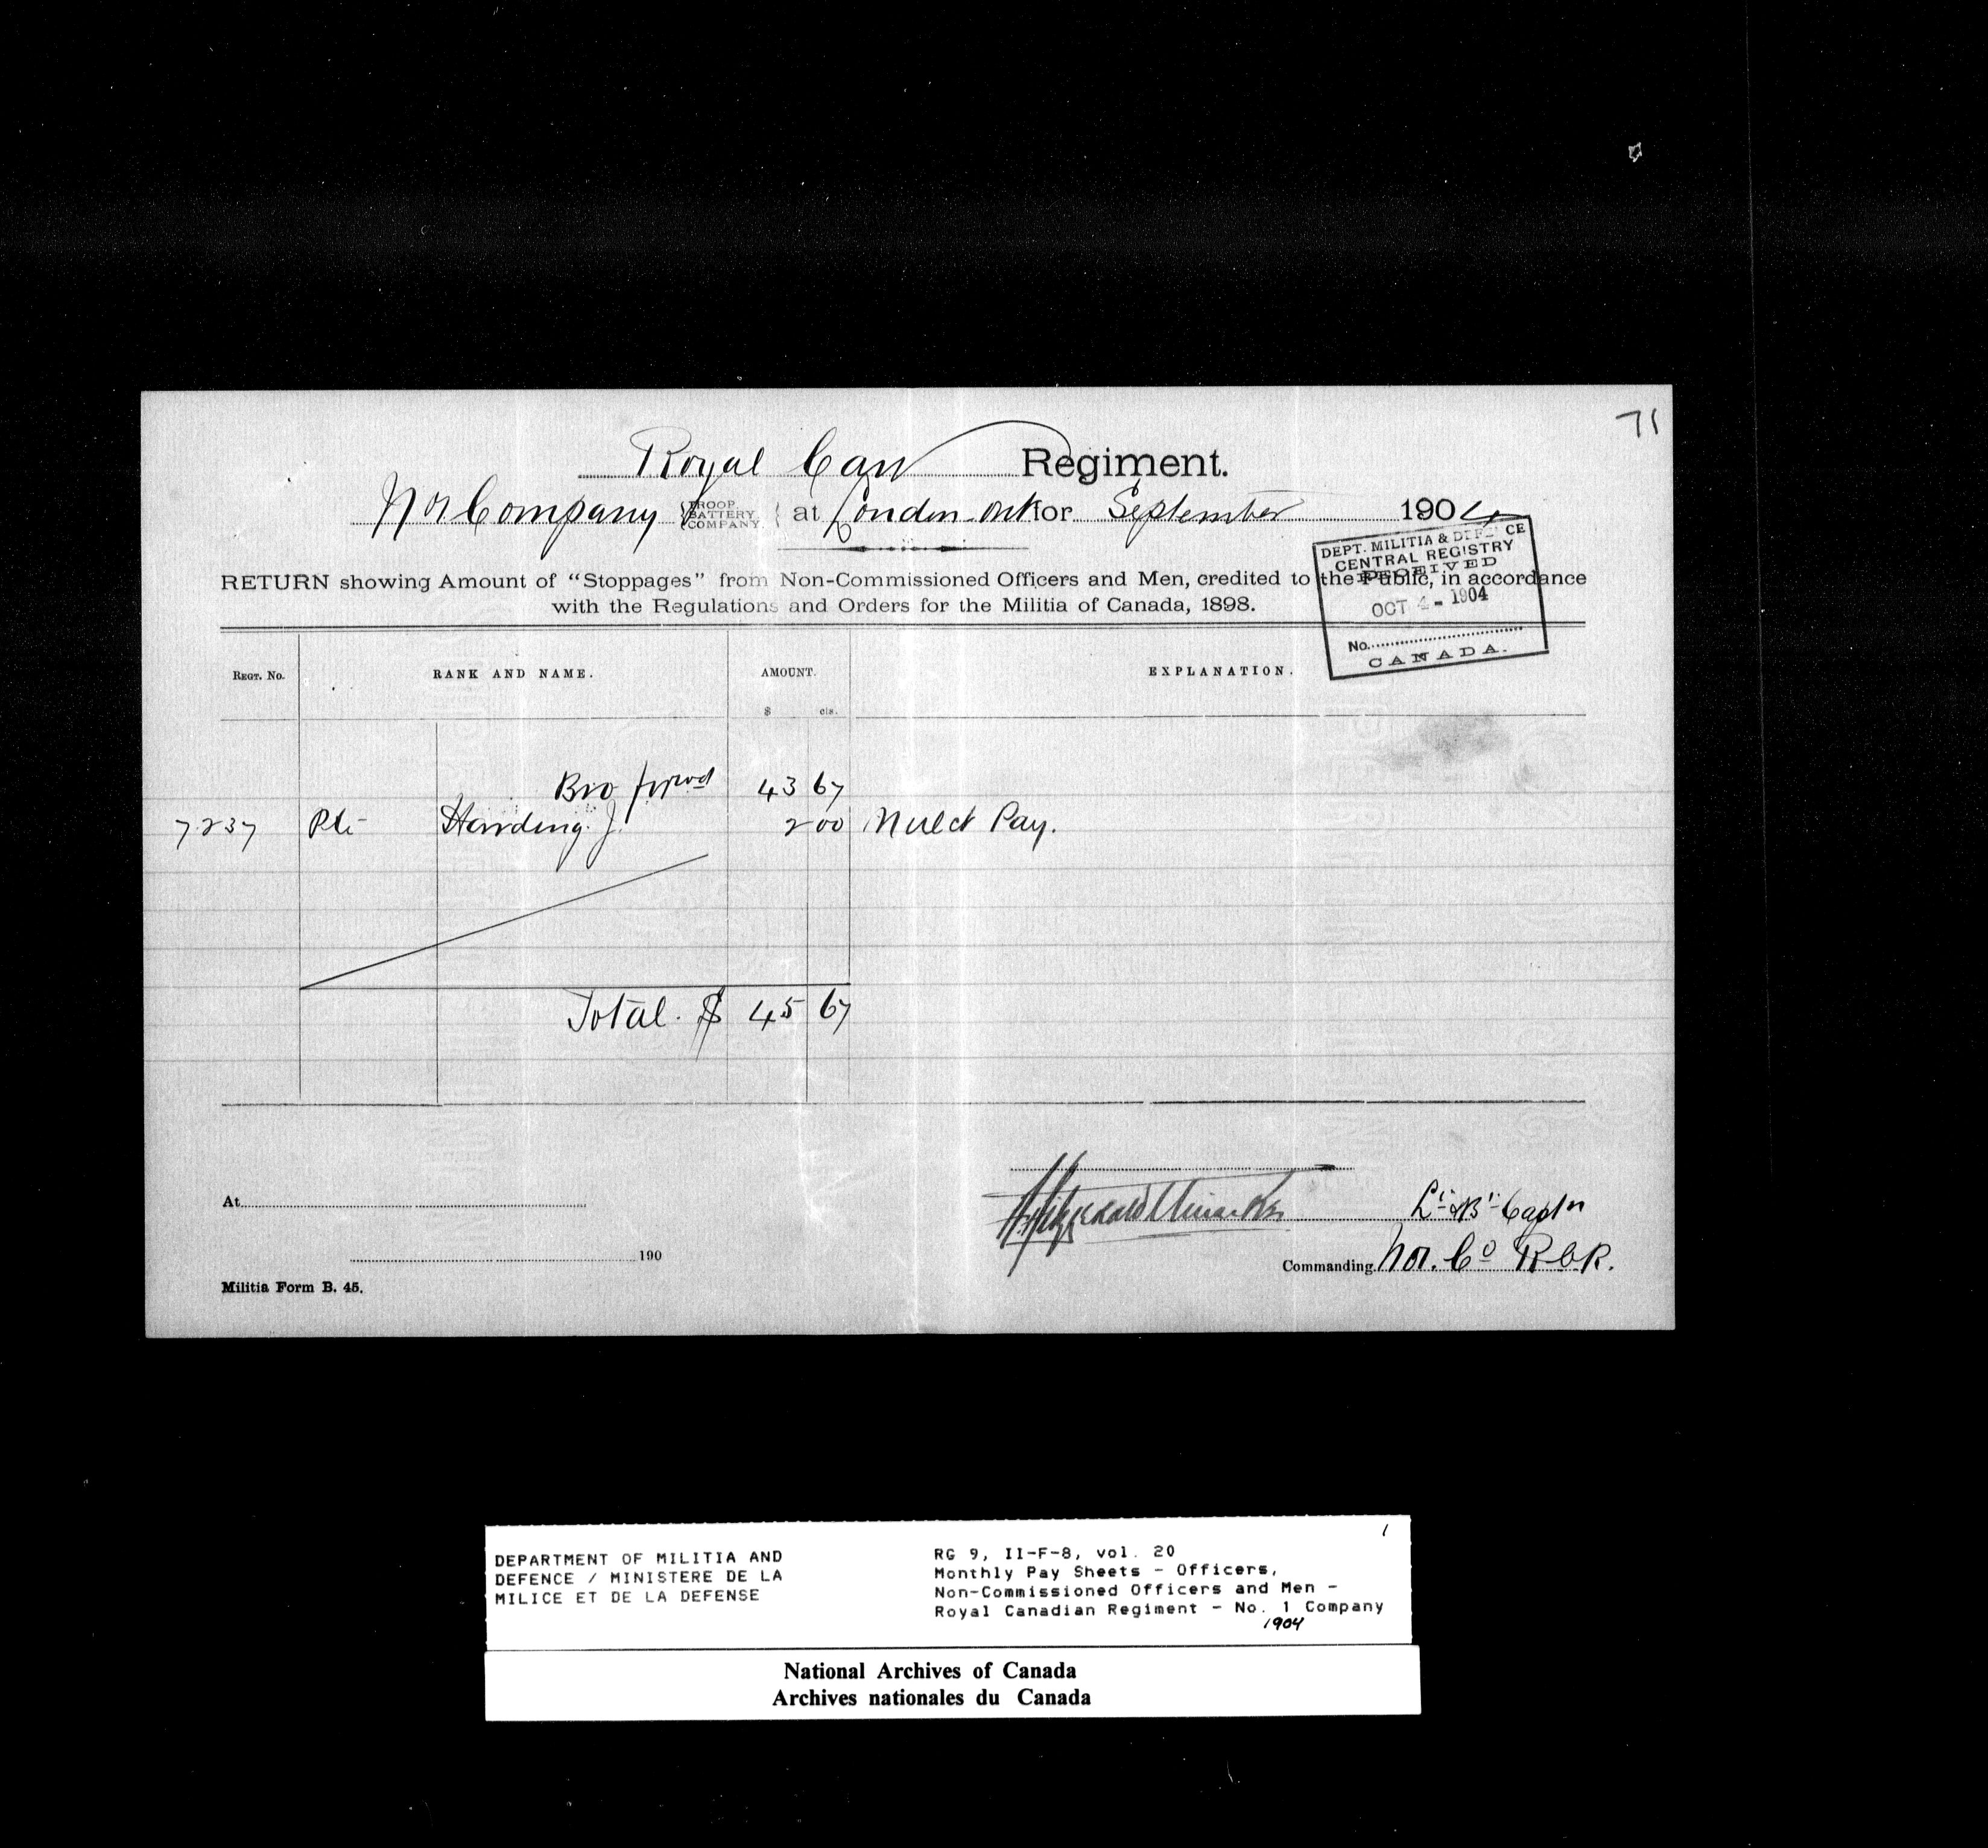 71
Royal Can Regiment.
No 1 Company { TROOP, BATTERY, COMPANY. } at London Ont for September 1904
DEPT. MILITIA & DEFENCE
CENTRAL REGISTRY
RECEIVED
OCT 4 - 1904
No.
CANADA.
RETURN showing Amount of “Stoppages” from Non-Commissioned Officers and Men, credited to the Public, in accordance
with the Regulations and Orders for the Militia of Canada, 1898.
REGT. No. RANK AND NAME. AMOUNT. EXPLANATION.
$ cts.
Bro forwd 43 67
7237 Pte Harding. J. 2 00 Mulct Pay.
Total. $ 45 67
At
Lt & Bt Captn
190
Commanding No 1. Co R.C.R.
Militia Form B. 45.
1
DEPARTMENT OF MILITIA AND
DEFENCE / MINISTERE DE LA
MILICE ET DE LA DEFENSE
RG 9, II-F-8, vol. 20
Monthly Pay Sheets - Officers,
Non-Commissioned Officers and Men -
Royal Canadian Regiment - No. 1 Company
1904
National Archives of Canada
Archives nationales du Canada